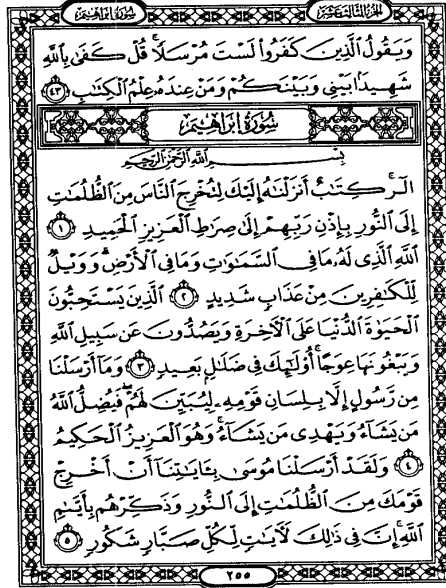 الجزء الثالث عشر
سورة إبراهيم
وَيَقُولُ ٱلَّذِينَ كَفَرُواْ لَسْتَ مُرْسَلًاۚ قُلْ كَفَىٰ بِٱللَّهِ
شَهِيدًۢا بَيْنِى وَبَيْنَكُمْ وَمَنْ عِندَهُۥ عِلْمُ ٱلْكِتَٰبِ ٤٣
سُورَةُ إِبْرَاهِيمَ
بِسْمِ ٱللَّهِ ٱلرَّحْمَٰنِ ٱلرَّحِيمِ
الٓرۚ كِتَٰبٌ أَنزَلْنَٰهُ إِلَيْكَ لِتُخْرِجَ ٱلنَّاسَ مِنَ ٱلظُّلُمَٰتِ
إِلَى ٱلنُّورِ بِإِذْنِ رَبِّهِمْ إِلَىٰ صِرَٰطِ ٱلْعَزِيزِ ٱلْحَمِيدِ ١
ٱللَّهِ ٱلَّذِى لَهُۥ مَا فِى ٱلسَّمَٰوَٰتِ وَمَا فِى ٱلْأَرْضِۗ وَوَيْلٌ
لِّلْكَٰفِرِينَ مِنْ عَذَابٍ شَدِيدٍ ٢ ٱلَّذِينَ يَسْتَحِبُّونَ
ٱلْحَيَوٰةَ ٱلدُّنْيَا عَلَى ٱلْأَخِرَةِ وَيَصُدُّونَ عَن سَبِيلِ ٱللَّهِ
وَيَبْغُونَهَا عِوَجًاۚ أُوْلَٰٓئِكَ فِى ضَلَٰلٍۭ بَعِيدٍ ٣ وَمَآ أَرْسَلْنَا
مِن رَّسُولٍ إِلَّا بِلِسَانِ قَوْمِهِۦ لِيُبَيِّنَ لَهُمْۖ فَيُضِلُّ ٱللَّهُ
مَن يَشَآءُ وَيَهْدِى مَن يَشَآءُۚ وَهُوَ ٱلْعَزِيزُ ٱلْحَكِيمُ
٤ وَلَقَدْ أَرْسَلْنَا مُوسَىٰ بِـَٔايَٰتِنَآ أَنْ أَخْرِجْ
قَوْمَكَ مِنَ ٱلظُّلُمَٰتِ إِلَى ٱلنُّورِ وَذَكِّرْهُم بِأَيَّىٰمِ
ٱللَّهِۚ إِنَّ فِى ذَٰلِكَ لَأَيَٰتٍ لِّكُلِّ صَبَّارٍ شَكُورٍ ٥
٢٥٥